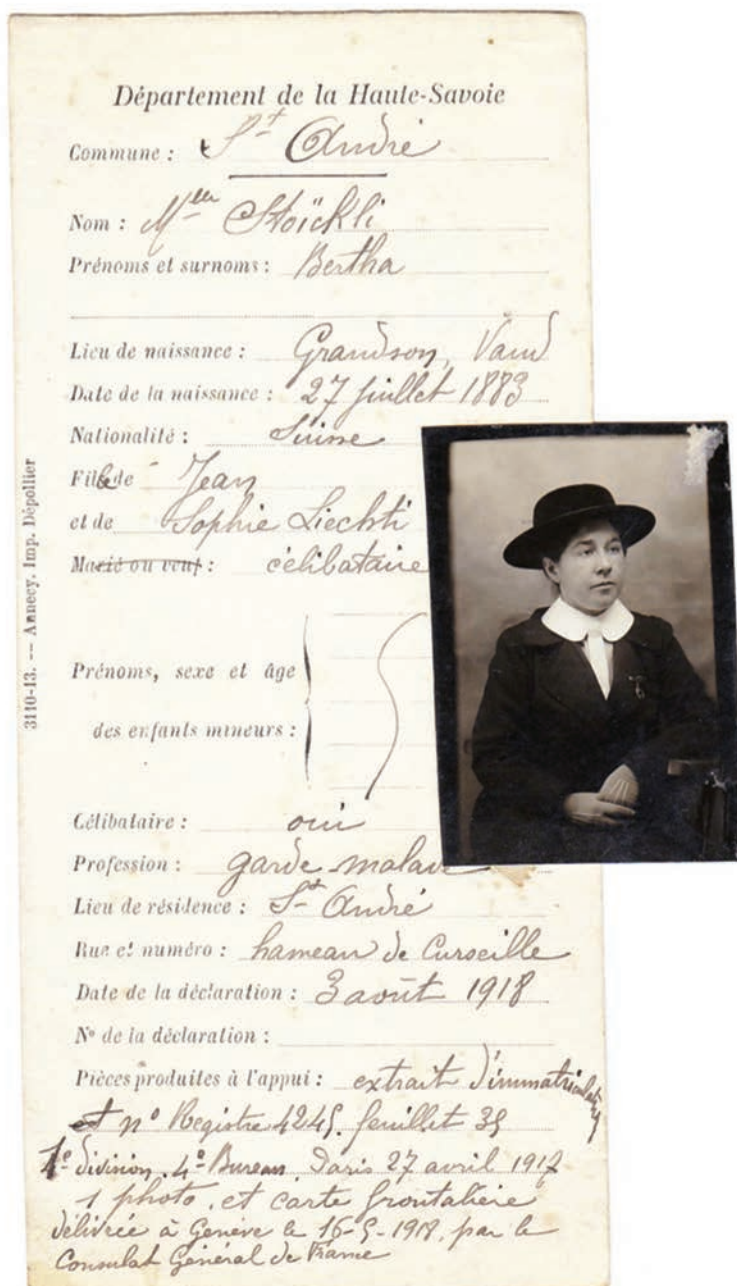 Département de la Haute-Savoie
Commune : St André
Nom : Mlle Stoïckli
Prénoms et surnoms : Bertha
Lieu de naissance : Grandson, Vaud
Date de la naissance : 27 juillet 1883
Nationalité : Suisse
Fille de Jean
et de Sophie Liechti
Marié ou veuf : célibataire
Prénoms, sexe et âge
des enfants mineurs :
Célibataire : oui
Profession : garde-malade
Lieu de résidence : St André
Rue et numéro : hameau de Curseille
Date de la déclaration : 3 août 1918
N° de la déclaration :
Pièces produites à l'appui : extrait d'immatriculation
et n° Registre 4245. feuillet 35
1e division. 4e Bureau. Paris 27 avril 1917
1 photo. et carte frontalière
délivrée à Genève le 16-5-1918. par le
Consulat Général de France
3110-13. -- Annecy, Imp. Dépollier